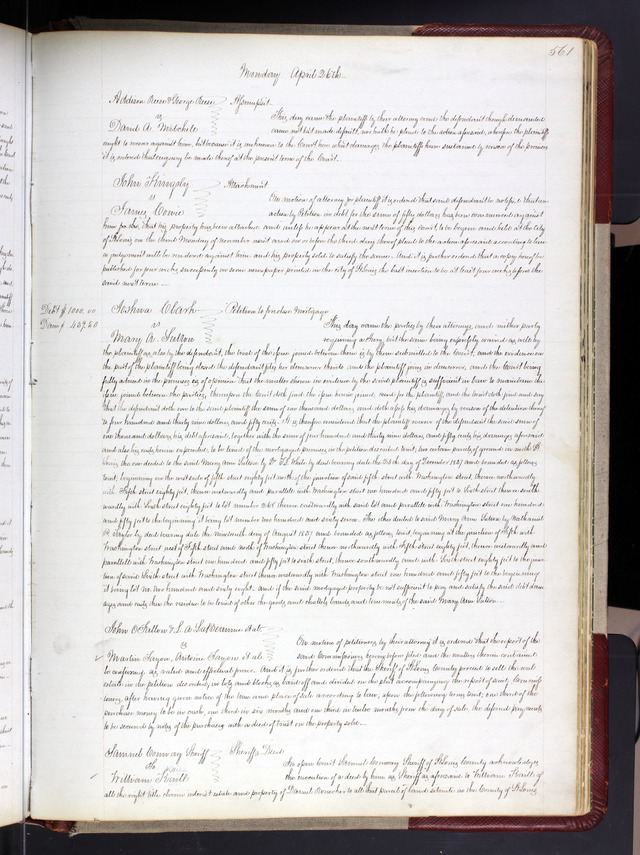 561
Monday April 26th
Addison Reese & George Reese Assumpsit
vs
David A. Mitchell
This day came the plaintiffs by their attorney and the defendant though demanded
came not but made default, nor hath he plead to the action aforesaid, wherefore the plaintiffs
ought to recover against him, but because it is unknown to the Court here what damages the plaintiffs have sustained by reason of the premises
it is ordered that enquiry be made thereof at the present term of the Court.
John Attachment
vs
James Cowie
On motion of attorney for plaintiff it is ordered that said defendant be notified that an
action by Petition in debt for the sum of fifty dollars has been commenced against
him that his property has been attached and unless he appear at the next term of this court, to be begun and held at the City
of St Louis on the third Monday of November next and on or before the third day thereof plead to the action aforesaid according to law
a judgement will be rendered against him and his property sold to satisfy the same. And it is further ordered that a copy hereof be
published for four weeks successively in some newspaper printed in the city of St Louis the last insertion to be at least four weeks before the
said next term
Debt $1000.00
Dam $ 439.50
Joshua Clark Petition to foreclose Mortgage
vs
Mary A. Sutton
This day came the parties by their attorneys, and neither party
requiring a Jury, but the same being expressly waived as well by
the plaintiff as also by the defendant, the trial of the issue joined between them is by them submitted to the Court, and the evidence on
the part of the plaintiff being closed the defendant files her demurrer thereto and the plaintiff joins in demurrer, and the Court being
fully advised in the premises is of opinion that the matter shown in evidence by the said plaintiff is sufficient in law to maintain the
issue joined between the parties, therefore the Court doth find the issue herein joined, and for the plaintiff, and the Court doth find and say
that the defendant doth owe to the said plaintiff the sum of one thousand dollars, and doth assess his damages by reason of the detention thereof
to four hundred and thirty nine dollars and fifty cents. It is therefore considered that the plaintiff recover of the defendant the said sum of
one thousand dollars his debt aforesaid, together with the sum of four hundred and thirty nine dollars and fifty cents his damages aforesaid
and also his costs herein expended, to be levied of the mortgaged premises in the petition described to wit, two certain parcels of ground in north St
Louis, the one deeded to the said Mary Ann Sutton by Wm White by deed bearing date the 23d day of December 1837 and bounded as follows
to wit, beginning on the east side of fifth street eighty feet north of the junction of said fifth street with Washington street, thence northwardly
with Fifth street eighty feet, thence eastwardly and parallel with Washington street one hundred and fifty feet to Sixth street thence south
wardly with Sixth street eighty feet to lot number 268 thence eastwardly with said lot and parallel with Washington street one hundred
and fifty feet to the beginning it being lot number two hundred and sixty seven. The other deeded to said Mary Ann Sutton by Nathaniel
P. Taylor by deed bearing date the nineteenth day of August 1837 and bounded as follows to wit, beginning at the junction of Fifth with
Washington street east of Fifth street and north of Washington street thence northwardly with Fifth street eighty feet, thence eastwardly and
parallel with Washington street one hundred and fifty feet to sixth street, thence southwardly and with Sixth street eighty feet to the junc
tion of said Sixth street with Washington street thence westwardly with Washington street one hundred and fifty feet to the beginning
it being lot no. two hundred and sixty eight. and if the said mortgaged property be not sufficient to pay and satisfy the said debt dam
ages and costs, then the residue to be levied of other the goods and chattels lands and tenements of the said Mary Ann Sutton
John O'Fallon & L. A. LaBeaume et al.
vs
Martin Fayon, Antoine Fayon et al.
On motion of petitioners, by their attorney it is ordered that the report of the
said Commissioners heretofore filed and the matters therein contained
be confirmed as valid and effectual prima. And it is further ordered that the Sheriff of St Louis County proceed to sell the real
estate in the petition described in lots and blocks, as laid off and divided on the plat accompanying the report of said Commiss
ioners, after having given notice of the time and place of sale according to law, upon the following terms to wit; one third of the
purchase money to be in cash, one third in six months and one third in twelve months from the day of sale, the deferred payments
to be secured by notes of the purchasers with a deed of trust on the property sold
Samuel Conway Sheriff Sheriffs Deed
To
William
In open Court Samuel Conway Sheriff of St Louis County acknowledges
the execution of a deed by him as Sheriff as aforesaid to William of
all the right title claim interest estate and property of Daniel Donohoe to all that parcel of land situate in the County of St Louis